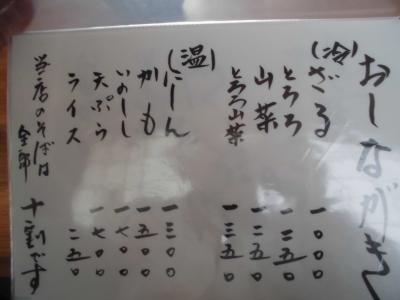 おしながき
(冷)ざる 一〇〇〇
とろろ 一二五〇
山菜 一二五〇
とろろ山菜 一三五〇
(温)にしん 一三〇〇
かも 一五〇〇
いのしし 一七〇〇
天ぷら 一七〇〇
ライス 二五〇
当店のそばは全部十割です